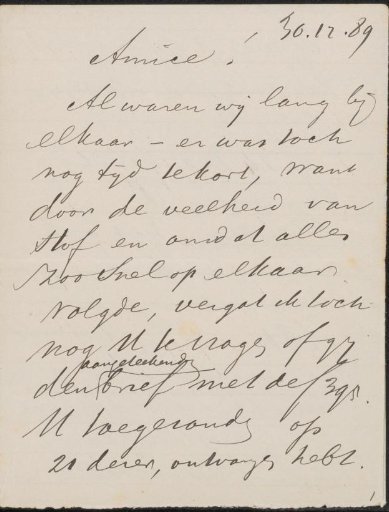 30.12.89
Amice!
Al waren wij lang bij
elkaar – er was toch
nog tijd te kort, want
door de veelheid van
stof en omdat alles
zoo snel op elkaar
volgde, vergat ik toch
nog U te vragen of gij
aangeteekenden
den brief met de
U toegezonden op
21 dezer, ontvangen hebt.
1